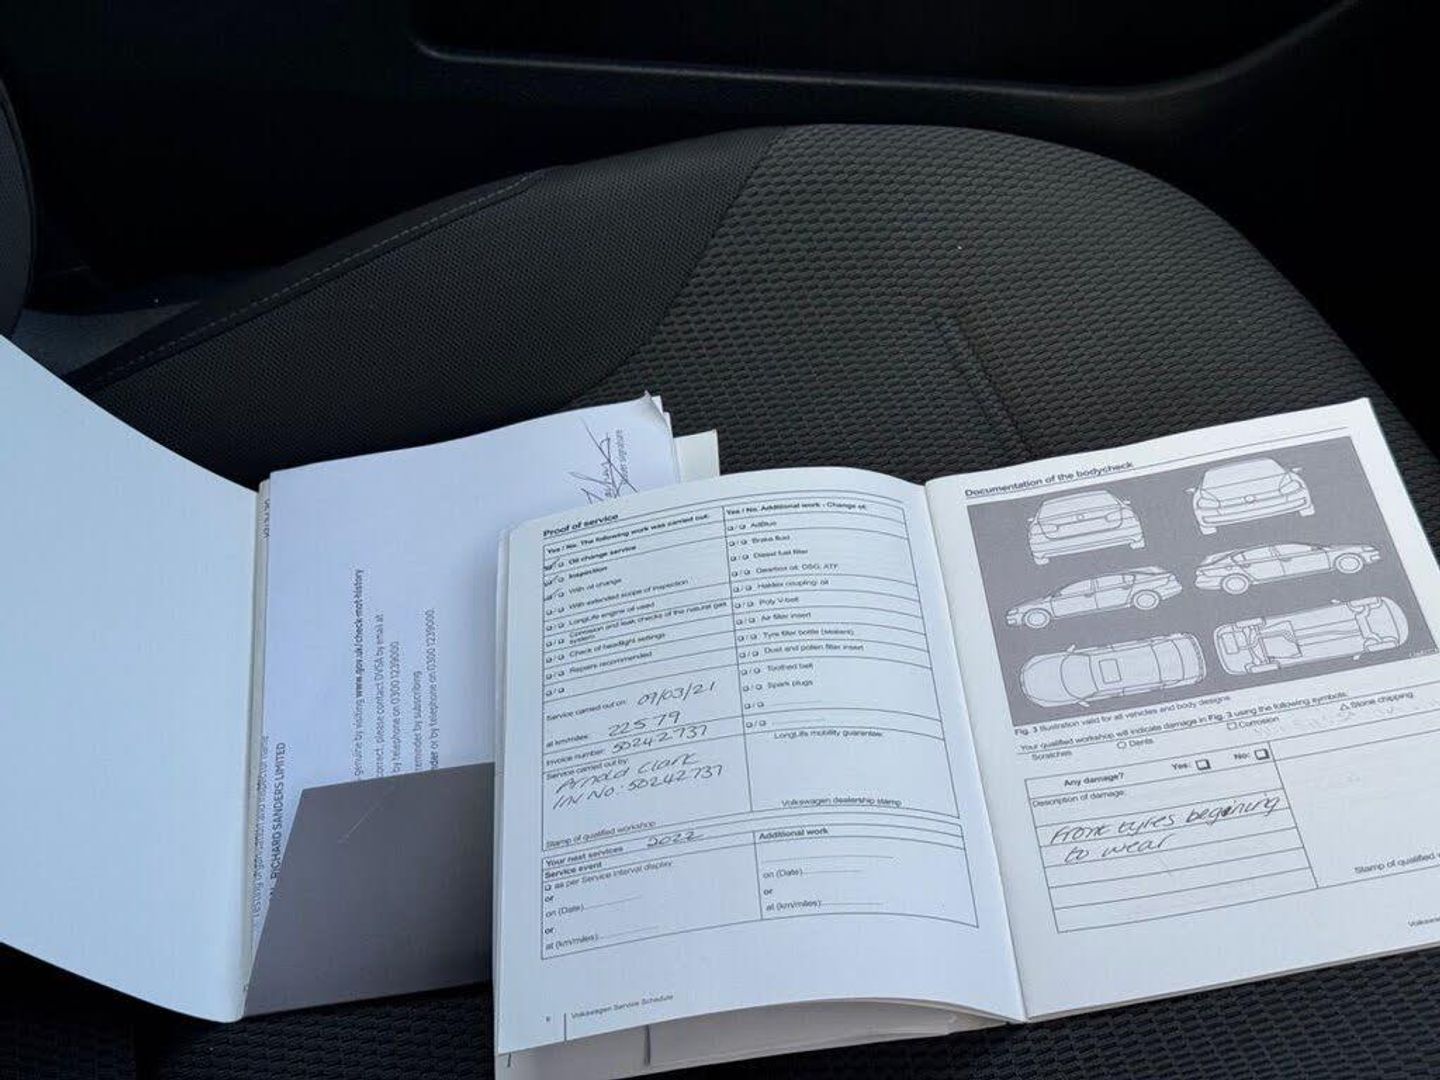 over signature
genuine by visiting www.gov.uk/check-mot-history
correct, please contact DVSA by email at
by telephone on 0300 1239000.
reminder by subscribing
or by telephone on 0300 1239000.
RICHARD SANDERS LIMITED
Proof of service
Yes / No. The following work was carried out:
Oil change service
Inspection
With oil change
With extended scope of inspection
LongLife engine oil used
Corrosion and leak checks of the natural gas
system
Check of headlight settings
Repairs recommended
Service carried out on: 09/03/21
at km/miles: 22579
Invoice number: 50242737
Service carried out by:
Arnold Clark
Inv No: 50242737
Stamp of qualified workshop
Your next services 2022
Service event
as per Service Interval display
or
on (Date)
or
at (km/miles)
Yes / No. Additional work - Change of:
AdBlue
Brake fluid
Diesel fuel filter
Gearbox oil: DSG, ATF
Haldex coupling: oil
Poly V-belt
Air filter insert
Tyre filler bottle (sealant)
Dust and pollen filter insert
Toothed belt
Spark plugs
LongLife mobility guarantee:
Volkswagen dealership stamp
Additional work
on (Date)
or
at (km/miles)
6 Volkswagen Service Schedule
Documentation of the bodycheck
Fig. 3 Illustration valid for all vehicles and body designs.
Your qualified workshop will indicate damage in Fig. 3 using the following symbols.
Scratches Dents Corrosion Stone chipping
Any damage? Yes: No:
Description of damage:
Front tyres beginning
to wear
Stamp of qualified
Volkswagen